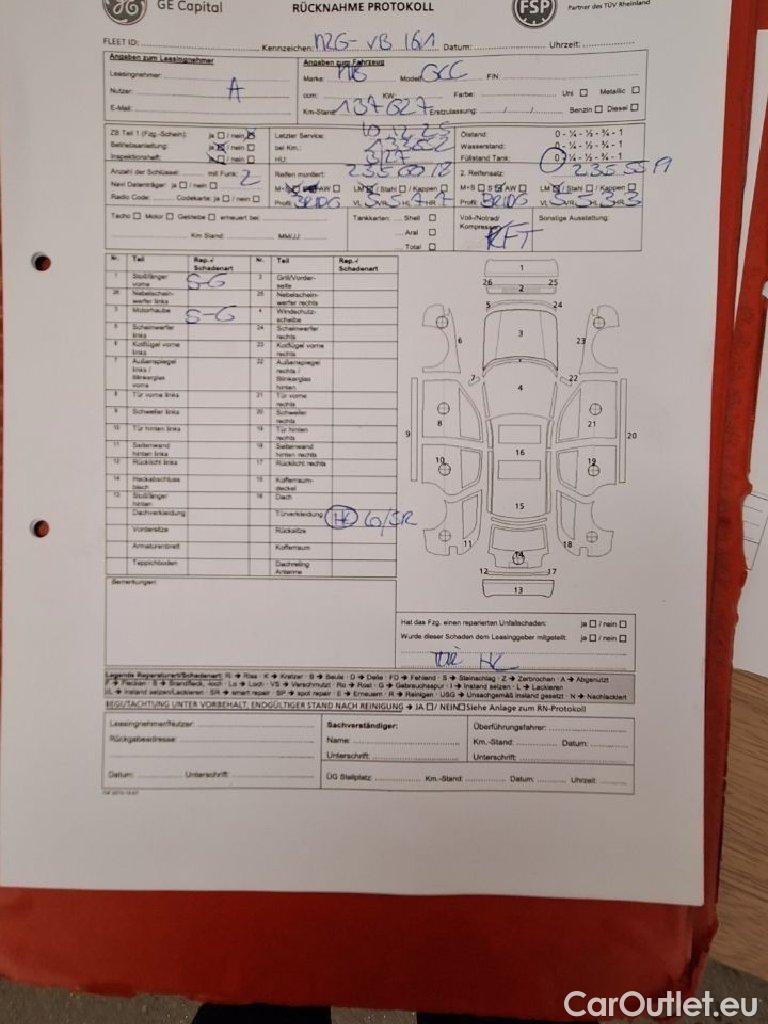 GE Capital
RÜCKNAHME PROTOKOLL
FSP
Partner des TÜV Rheinland
FLEET ID:
Kennzeichen: MZG-VB 161 Datum: Uhrzeit:
Angaben zum Leasingnehmer
Leasingnehmer:
Nutzer: A
E-Mail:
Angaben zum Fahrzeug
Marke MB Modell GLC FIN:
ccm: KW: Farbe: Uni ☐ Metallic ☐
Km-Stand 137627 Erstzulassung: / / Benzin ☐ Diesel ☐
ZB Teil 1 (Fzg.-Schein): ja ☐ / nein ☒
Betriebsanleitung: ja ☒ / nein ☐
Inspektionsheft: ja ☒ / nein ☐
Letzter Service:
bei Km.:
HU: 3/27
Ölstand: 0 - ¼ - ½ - ¾ - 1
Wasserstand: 0 - ¼ - ½ - ¾ - 1
Füllstand Tank: 0 - ¼ - ½ - ¾ - 1
Anzahl der Schlüssel: mit Funk: 2
Navi Datenträger: ja ☐ / nein ☐
Radio Code: Codekarte: ja ☐ / nein ☐
Reifen montiert: 235 60 18
LM ☒ / Stahl ☐ / Kappen ☐
Profil BRIDG VL 5 VR 5 HL 7 HR 7
2. Reifensatz: 235 55 19
M+S ☐ S ☒ AW ☐ LM ☒ / Stahl ☐ / Kappen ☐
Profil BRIDG VL 5 VR 5 HL 3 HR 3
Tacho ☐ Motor ☐ Getriebe ☐ erneuert bei
Km Stand: MM/JJ
Tankkarten: Shell ☐
Aral ☐
Total ☐
Voll-/Notrad/
Kompressor KFT
Sonstige Ausstattung:
Nr. Teil Rep.-/ Schadenart Nr. Teil Rep.-/ Schadenart
1 Stoßfänger vorne S-G 2 Grill/Vorderseite
26 Nebelscheinwerfer links 25 Nebelscheinwerfer rechts
3 Motorhaube S-G 4 Windschutzscheibe
5 Scheinwerfer links 24 Scheinwerfer rechts
6 Kotflügel vorne links 23 Kotflügel vorne rechts
7 Außenspiegel links / Blinkerglas vorne 22 Außenspiegel rechts / Blinkerglas hinten
8 Tür vorne links 21 Tür vorne rechts
9 Schweller links 20 Schweller rechts
10 Tür hinten links 19 Tür hinten rechts
11 Seitenwand hinten links 18 Seitenwand hinten rechts
12 Rücklicht links 17 Rücklicht rechts
14 Heckabschluss blech 15 Kofferraumdeckel
13 Stoßfänger hinten 16 Dach
Dachverkleidung Türverkleidung HL
Vordersitze Rücksitze
Armaturenbrett Kofferraum
Teppichboden Dachreling Antenne
1
26 2 25
5 24
6 3 23
7 4 22
8 21
9 16 20
10 19
15
11 14 18
12 17
13
Bemerkungen:
Hat das Fzg. einen reparierten Unfallschaden: ja ☐ / nein ☐
Wurde dieser Schaden dem Leasinggeber mitgeteilt: ja ☐ / nein ☐
Legende Reparaturart/Schadenart: R → Riss · K → Kratzer · B → Beule · D → Delle · FD → Fehlend · S → Steinschlag · Z → Zerbrochen · A → Abgenutzt
BEGUTACHTUNG UNTER VORBEHALT, ENDGÜLTIGER STAND NACH REINIGUNG → JA ☐ / NEIN ☐ Siehe Anlage zum RN-Protokoll
Leasingnehmer/Nutzer:
Rückgabeadresse:
Datum: Unterschrift:
Sachverständiger:
Name:
Unterschrift:
Überführungsfahrer:
Km.-Stand: Datum:
Unterschrift:
ÜG Stellplatz: Km.-Stand: Datum: Uhrzeit:
CarOutlet.eu